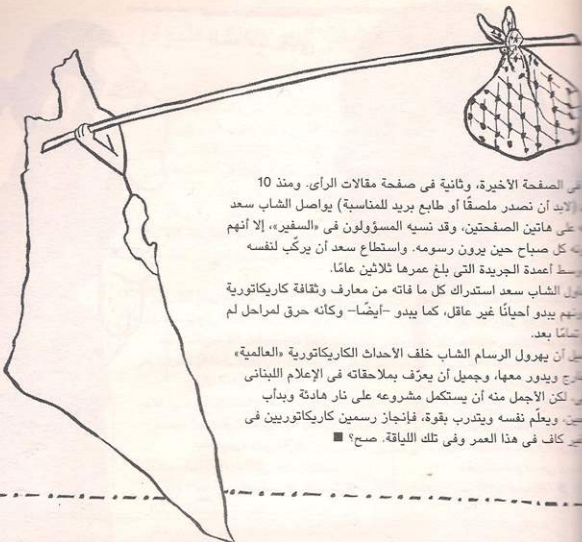 الصفحة الأخيرة، وثانية فى صفحة مقالات الرأى. ومنذ 10
(لابد أن نصدر ملصقًا أو طابع بريد للمناسبة) يواصل الشاب سعد
على هاتين الصفحتين، وقد نسيه المسؤولون فى «السفير»، إلا أنهم
كل صباح حين يرون رسومه. واستطاع سعد أن يركّب لنفسه
أعمدة الجريدة التى بلغ عمرها ثلاثين عامًا.
الشاب سعد استدراك كل ما فاته من معارف وثقافة كاريكاتورية
يبدو أحيانًا غير عاقل، كما يبدو –أيضًا– وكأنه حرق لمراحل لم
بعد.
أن يهرول الرسام الشاب خلف الأحداث الكاريكاتورية «العالمية»
ويدور معها، وجميل أن يعرّف بملاحقاته فى الإعلام اللبنانى
لكن الأجمل منه أن يستكمل مشروعه على نار هادئة وبدأب
ويعلّم نفسه ويتدرب بقوة، فإنجاز رسمين كاريكاتوريين فى
كاف فى هذا العمر وفى تلك اللياقة. صح؟ ■